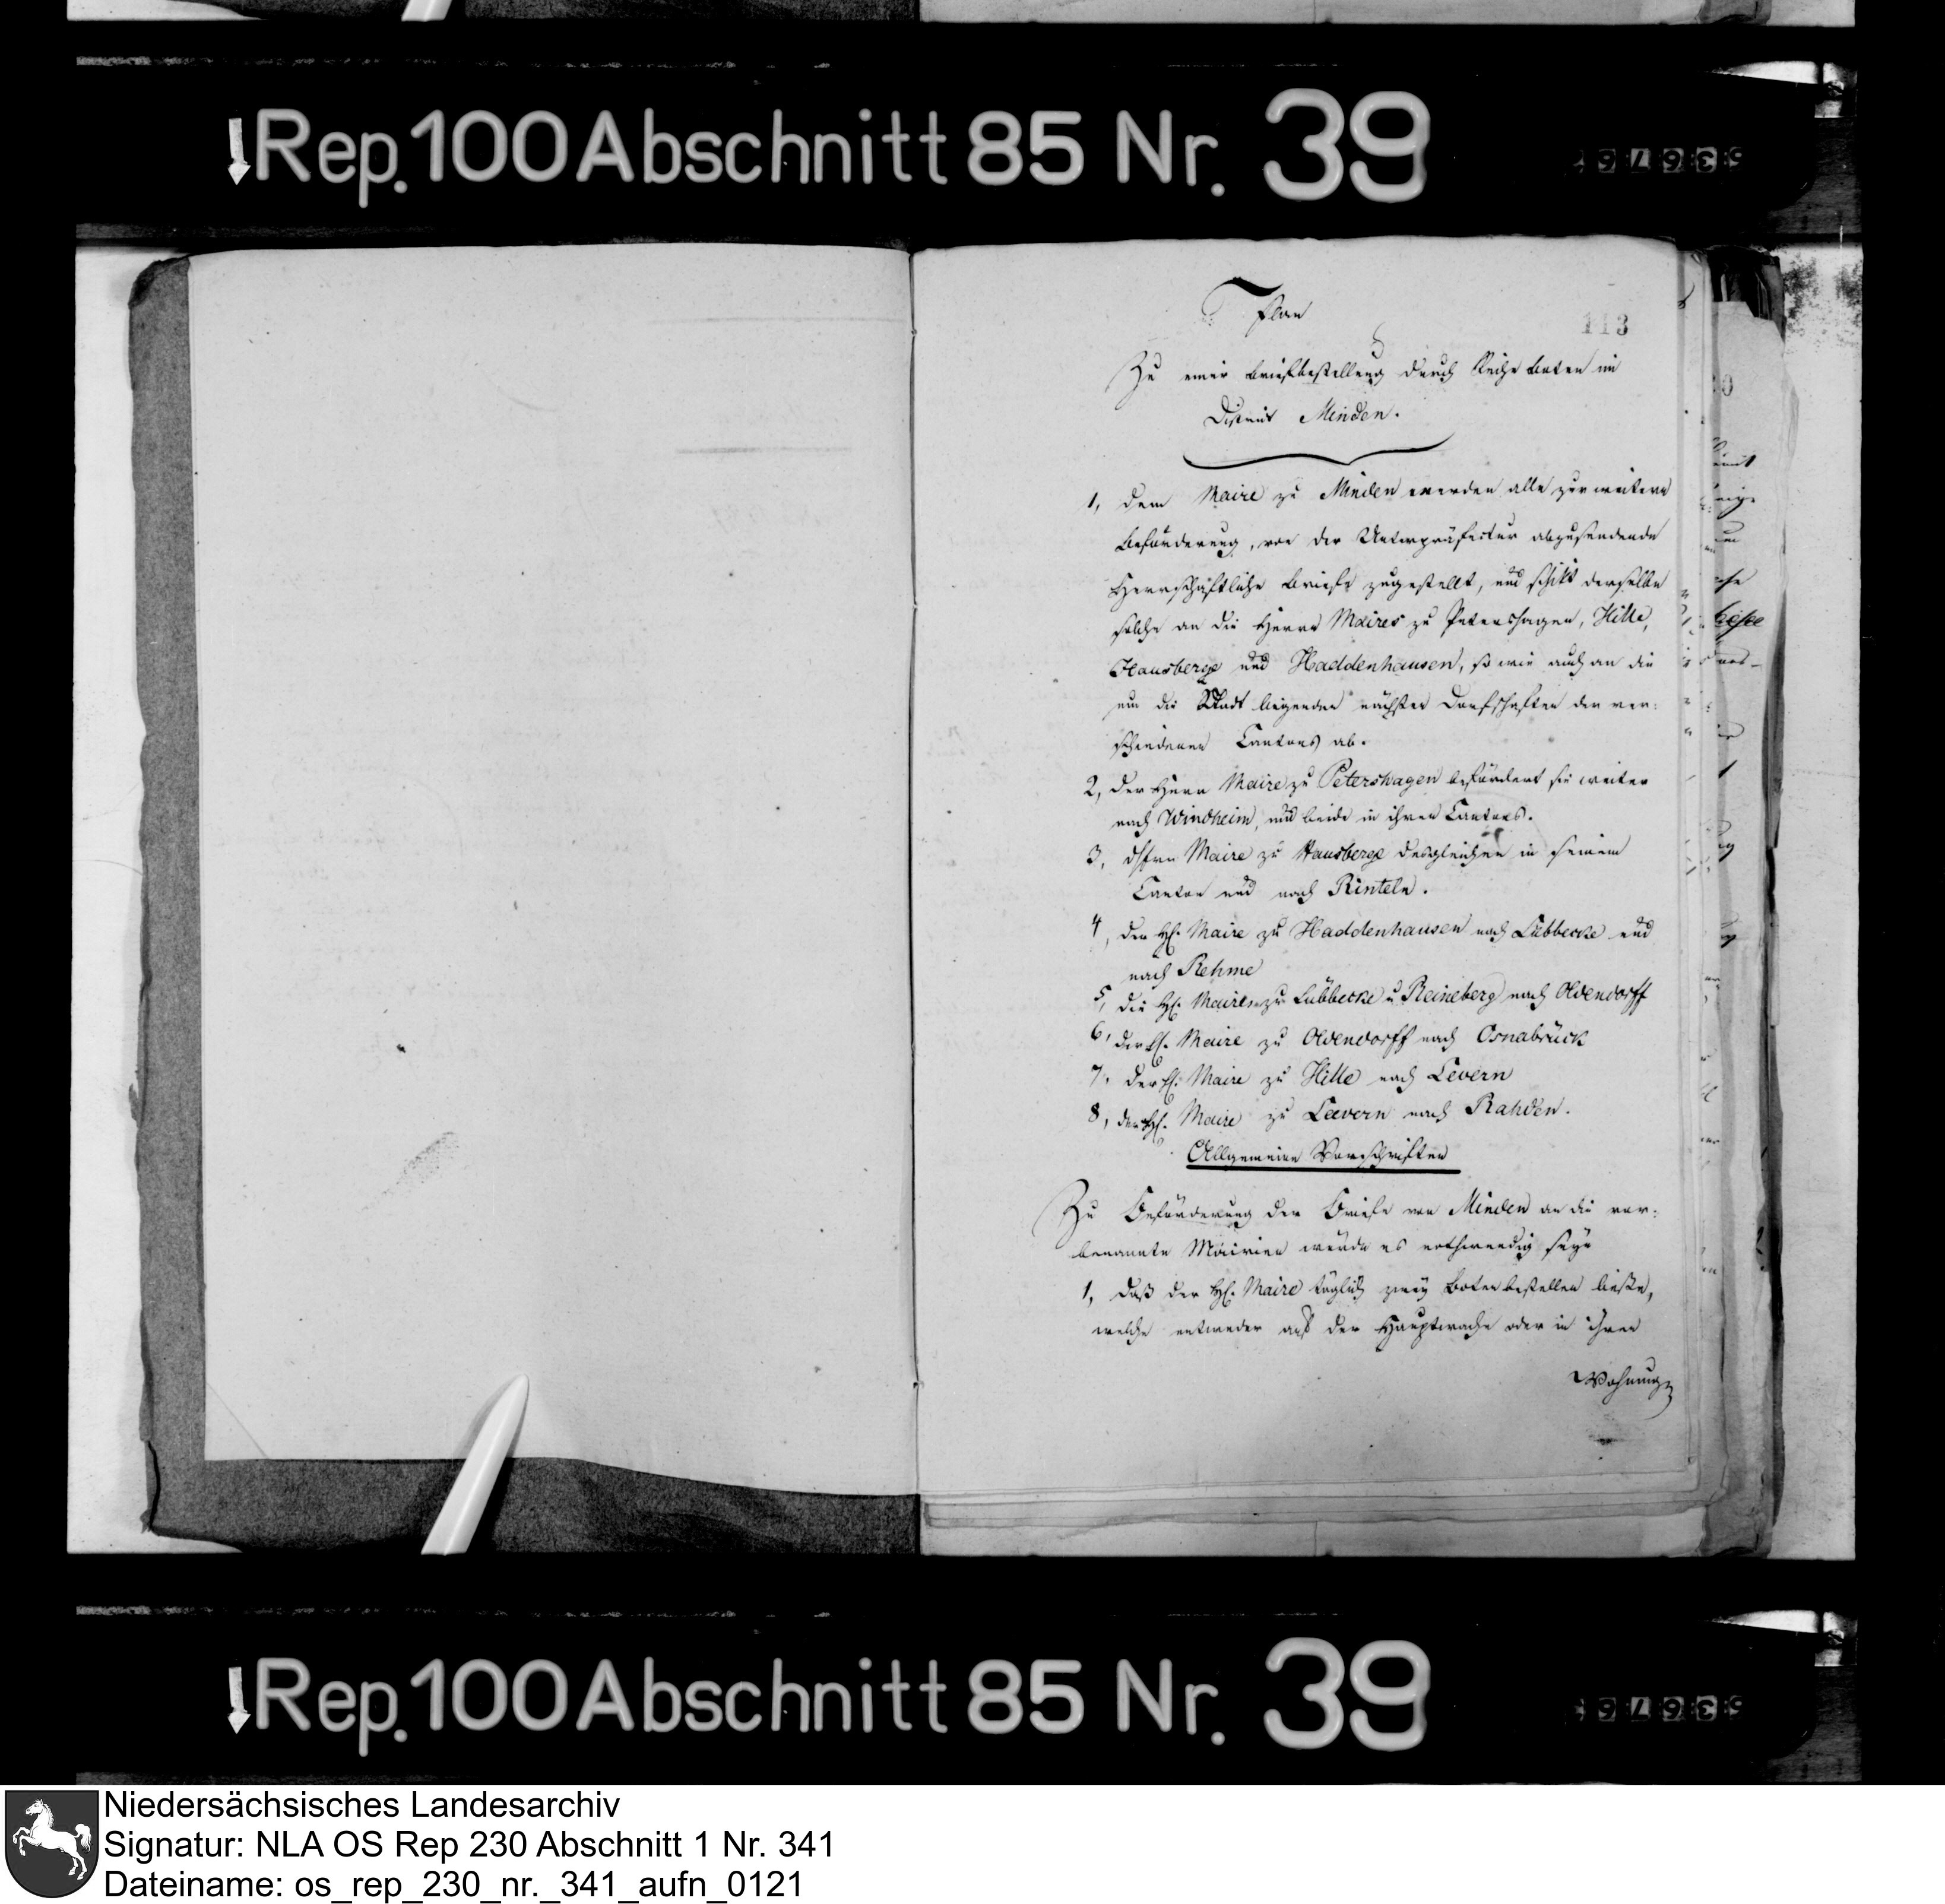 Rep. 100 Abschnitt 85 Nr. 39
Plan
113
Zu einer Briefbestellung durch Reihe Boten im
District Minden.
1, Dem Maire zu Minden werden alle zur weitern
Beförderung, von der Unterpräfectur abzusendende
Herrschaftliche Briefe zugestellt, und schikt derselbe
solche an die Herrn Maires zu Petershagen, Hille,
Hausberge und Haddenhausen, so wie auch an die
um die Stadt liegenden nächsten Dorfschaften der ver:
schiedenen Cantons ab.
2, Der Herr Maire zu Petershagen befördert sie weiter
nach Windheim, und beide in ihren Cantons.
3, Maire zu Hausberge desgleichen in seinem
Canton und nach Rinteln.
4, der H. Maire zu Haddenhausen nach Lübbecke und
nach Rehme
5, die H. Maires zu Lübbecke u Reineberg nach Oldendorff
6, der H. Maire zu Oldendorff nach Osnabrück
7, der H. Maire zu Hille nach Levern
8, der H. Maire zu Leevern nach Rahden.
Allgemeine Vorschriften
Zu Beförderung der Briefe von Minden an die vor:
benannte Mairien würde es nothwendig seyn
1, daß der H. Maire täglich zwey Boten bestellen ließe,
welche entweder auf der Hauptwache oder in ihren
Wohnungen
Rep. 100 Abschnitt 85 Nr. 39
Niedersächsisches Landesarchiv
Signatur: NLA OS Rep 230 Abschnitt 1 Nr. 341
Dateiname: os_rep_230_nr._341_aufn_0121